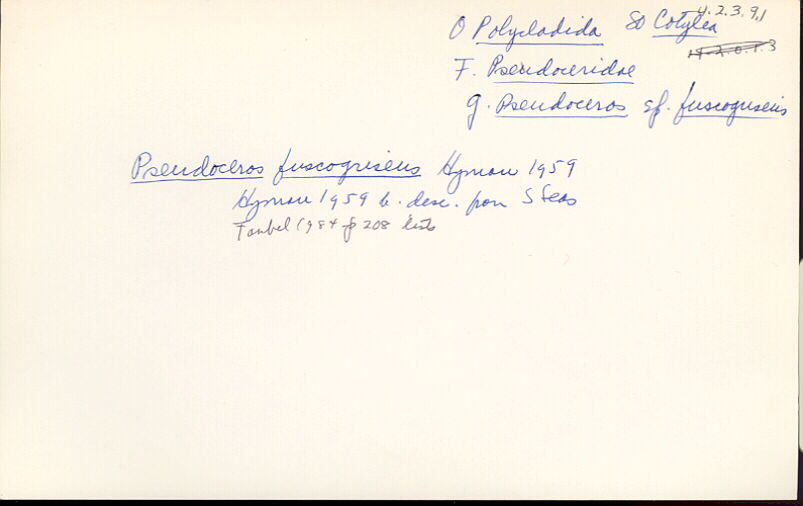 4.2.3.9.1
O Polycladida SO Cotylea
F. Pseudoceridae
g. Pseudoceros sp. fuscogriseus
Pseudoceros fuscogriseus Hyman 1959
Hyman 1959 b. desc. from S Seas
Faubel 1984 p 208 lists